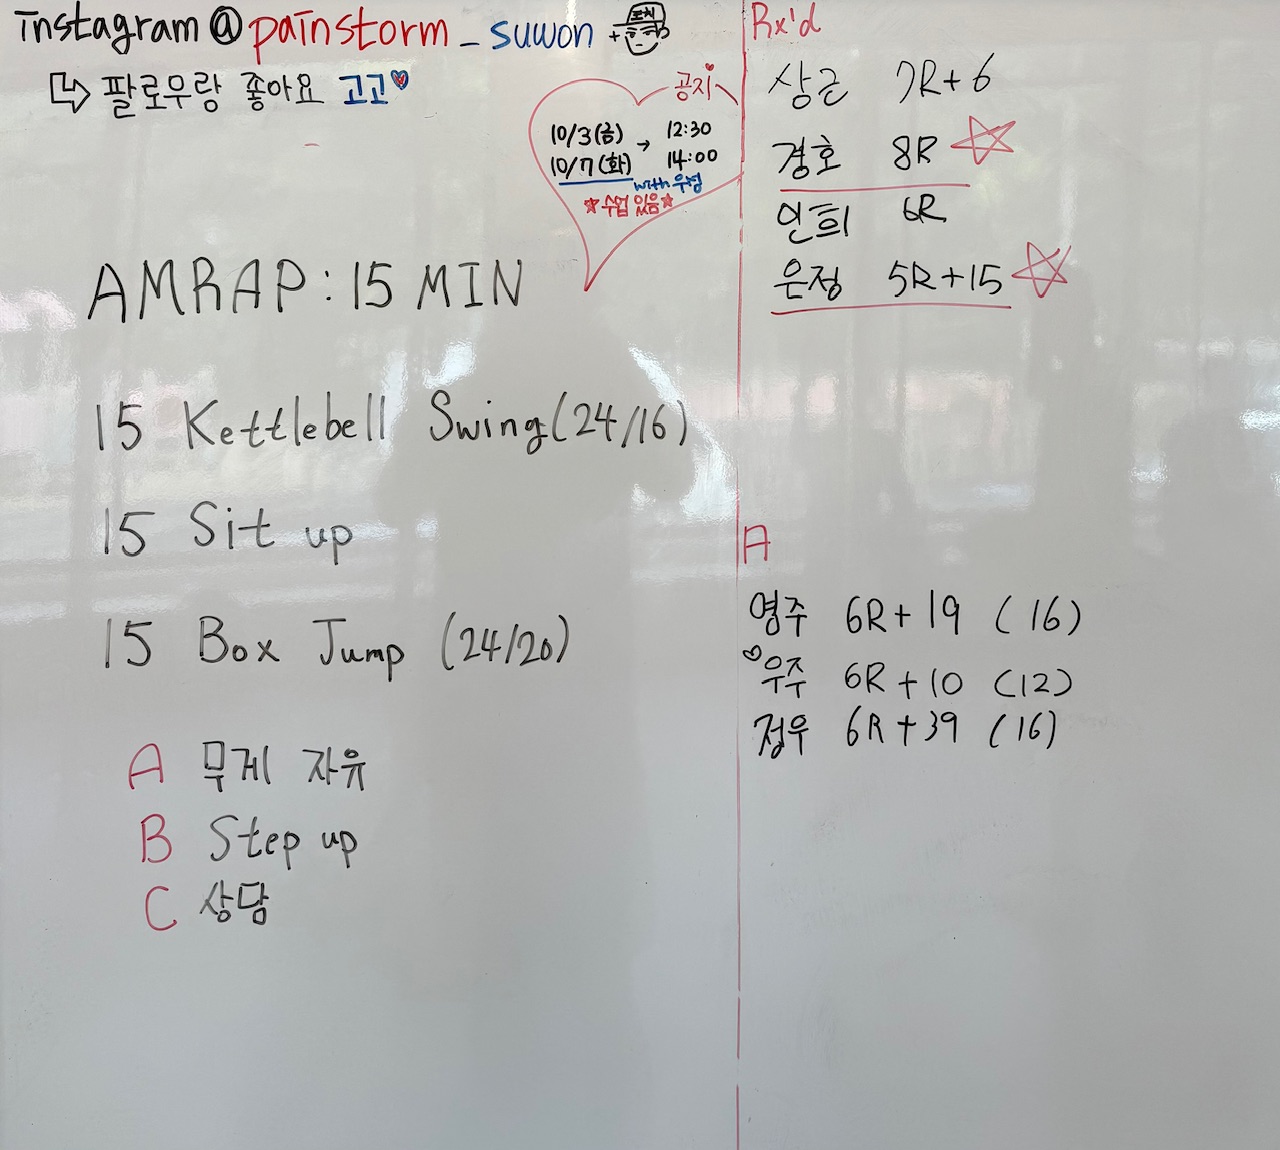 instagram @ painstorm_suwon + 코치
팔로우랑 좋아요 고고
공지
10/3(금) → 12:30
10/7(화) 14:00
with 우정
☆수업 있음☆
AMRAP : 15 MIN
15 Kettlebell Swing(24/16)
15 Sit up
15 Box Jump (24/20)
A 무게 자유
B Step up
C 상담
Rx'd
상근 7R+6
경호 8R
인희 6R
은정 5R+15
A
영주 6R+19 (16)
우주 6R+10 (12)
정우 6R+39 (16)